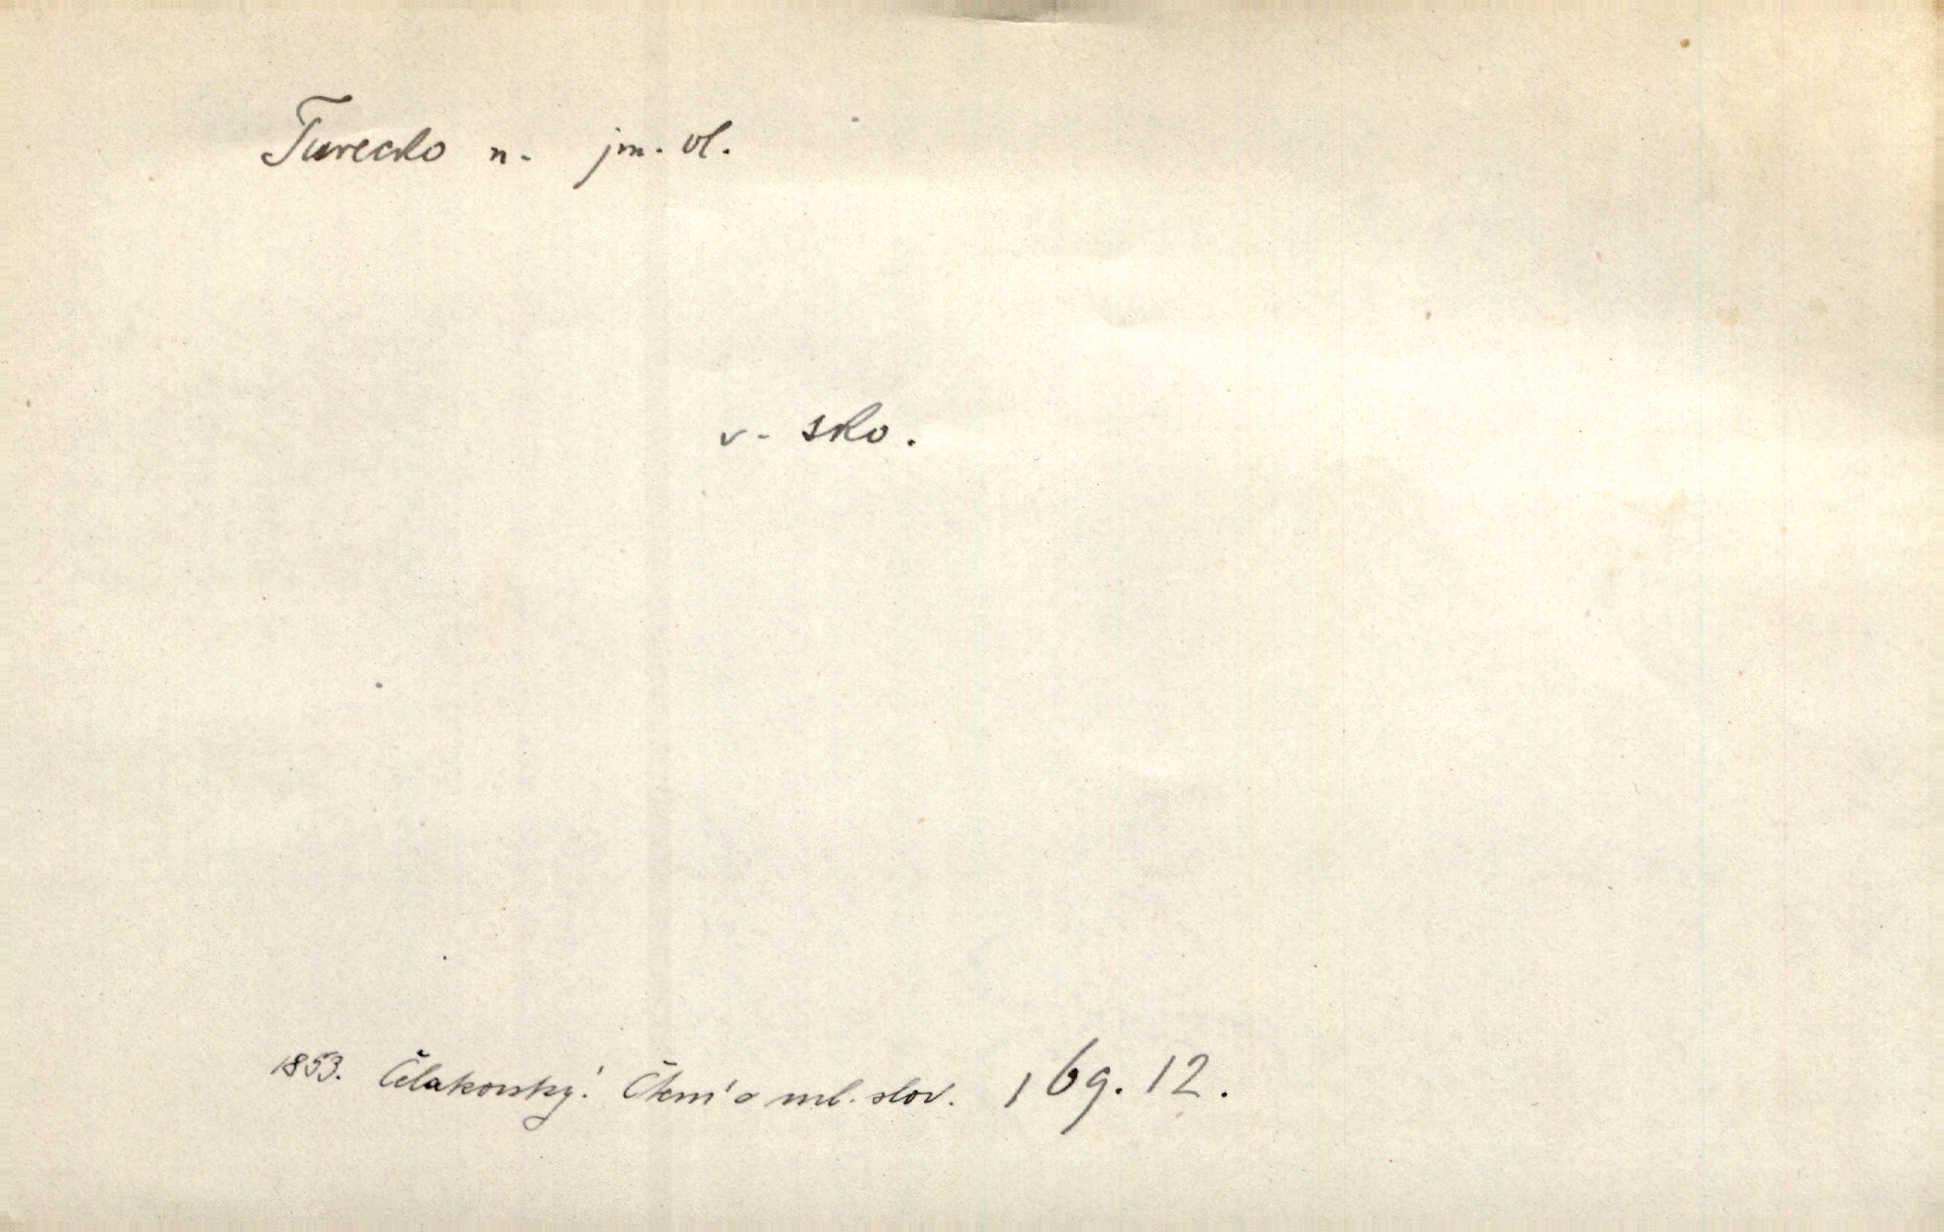 Turecko n. jm. vl.
v. sko.
1853. Čelakovský: Čtení o ml. slov. 169. 12.